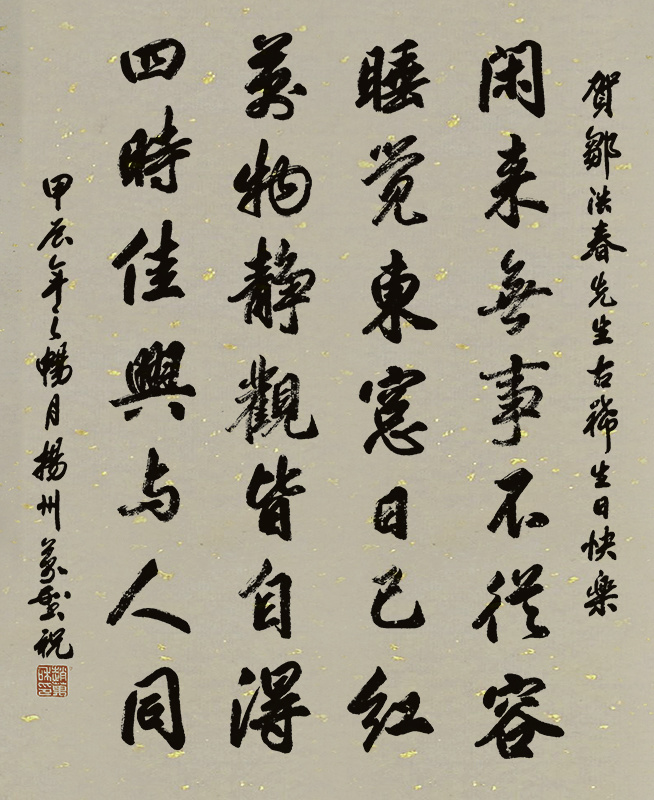 賀鄒洪春先生古稀生日快樂
闲来無事不從容
睡觉東窓日已紅
萬物静觀皆自得
四時佳興与人同
甲辰年之暢月揚州萬祝